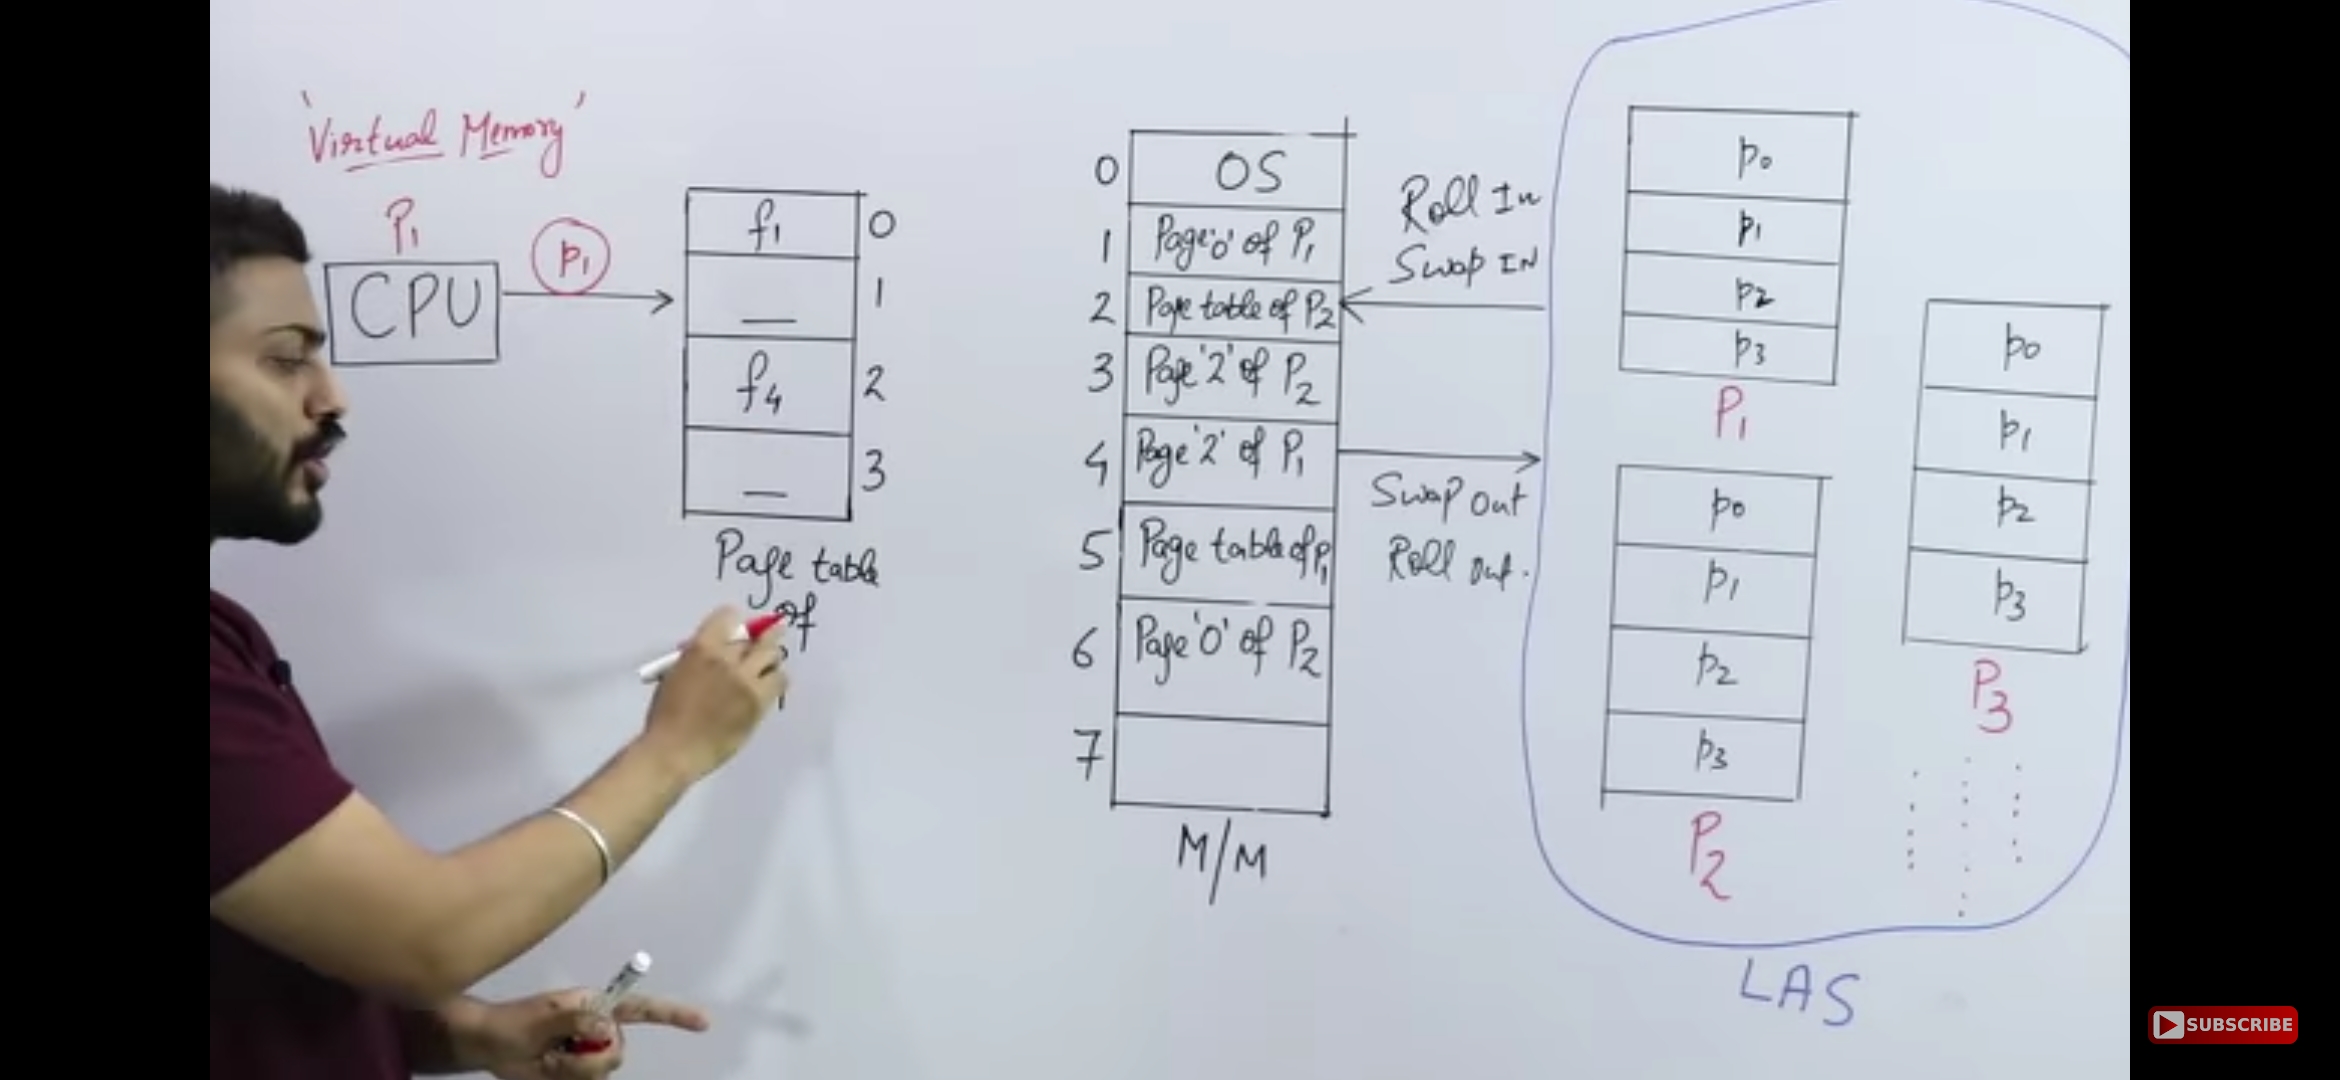 'Virtual Memory'
P1
CPU
p1
f1 0
— 1
f4 2
— 3
Page table
of
0 OS
1 Page '0' of P1
2 Page table of P2
3 Page '2' of P2
4 Page '2' of P1
5 Page table of P1
6 Page '0' of P2
7
M/M
Roll In
Swap IN
Swap Out
Roll Out.
p0
p1
p2
p3
P1
p0
p1
p2
p3
P2
p0
p1
p2
p3
P3
LAS
SUBSCRIBE